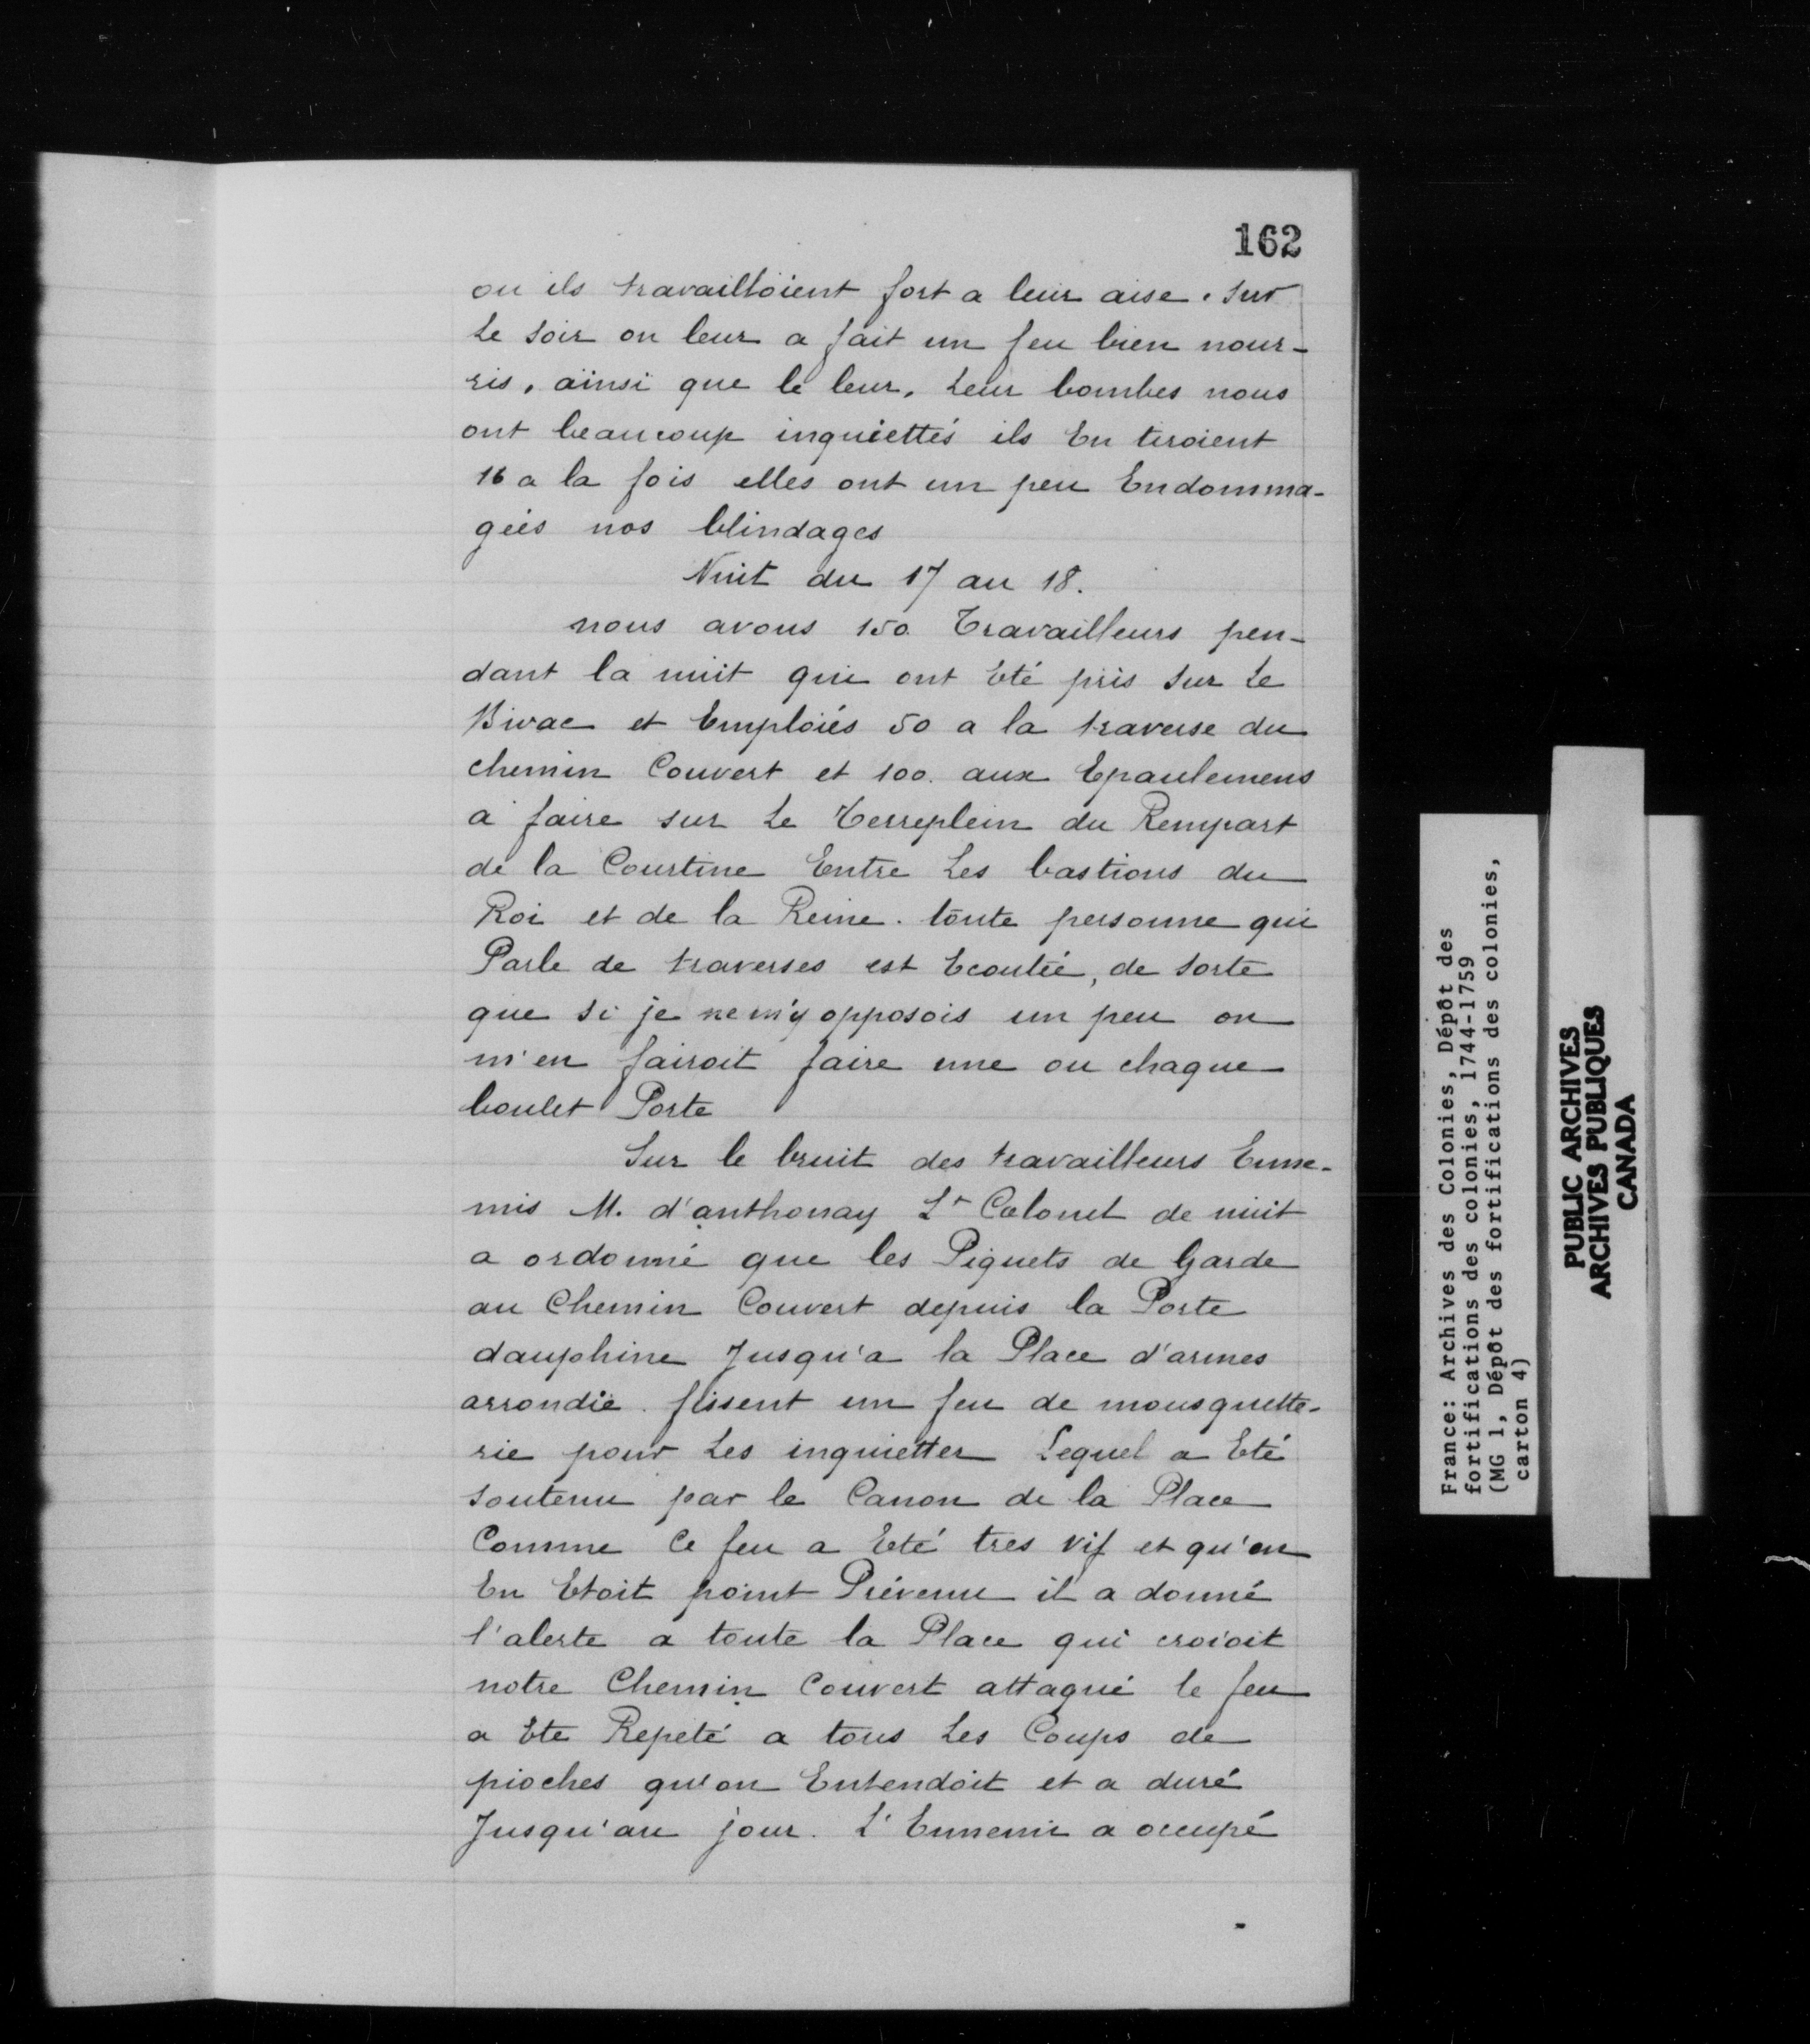 162
ou ils travailloient fort a leur aise. Sur
Le soir on leur a fait un feu bien nour-
ris, ainsi que le leur, Leur bombes nous
ont beaucoup inquiettés ils En tiroient
16 a la fois elles ont un peu Endomma-
gées nos blindages
Nuit du 17 au 18.
nous avons 150. Travailleurs pen-
dant la nuit qui ont Eté pris Sur Le
Bivac et Emploiés 50 a la traverse du
chemin Couvert et 100. aux Epaulemens
a faire sur Le Terreplein du Rempart
de la Courtine Entre Les bastions du
Roi et de la Reine. toute personne qui
Parle de traverses est Ecoutée, de sorte
que si je ne m'y opposois un peu on
m'en fairoit faire une ou chaque
boulet Porte
Sur le bruit des travailleurs Enne-
mis M. d'anthonay Lt Colonel de nuit
a ordonné que les Piquets de Garde
au Chemin Couvert depuis la Porte
dauphine Jusqu'a la Place d'armes
arrondie. fissent un feu de mousquette-
rie pour Les inquietter Lequel a Eté
soutenu par le Canon de la Place
Comme Ce feu a Eté tres vif et qu'on
En Etoit point Prévenu il a donné
l'alerte a toute la Place qui croioit
notre Chemin Couvert attaqué le feu
a Ete Repeté a tous Les Coups de
pioches qu'on Entendoit et a duré
Jusqu'au jour. L'Ennemi a occupé
France: Archives des Colonies, Dépôt des
fortifications des colonies, 1744-1759
(MG 1, Dépôt des fortifications des colonies,
carton 4)
PUBLIC ARCHIVES
ARCHIVES PUBLIQUES
CANADA